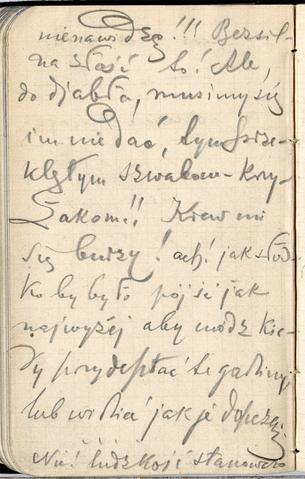 nienawidzę!!! Bezsil-
na złość to! Ale,
do djabła, musimy się
im nie dać, tym prze-
klętym szwabom-krzy-
żakom!! Krew mi
się burzy! ach! jak słod-
ko by było pójść jak
najwyżej aby módz kie-
dy przydeptać te gadziny,
lub widzieć jak je depczą
Nie! ludzkość stanowczo